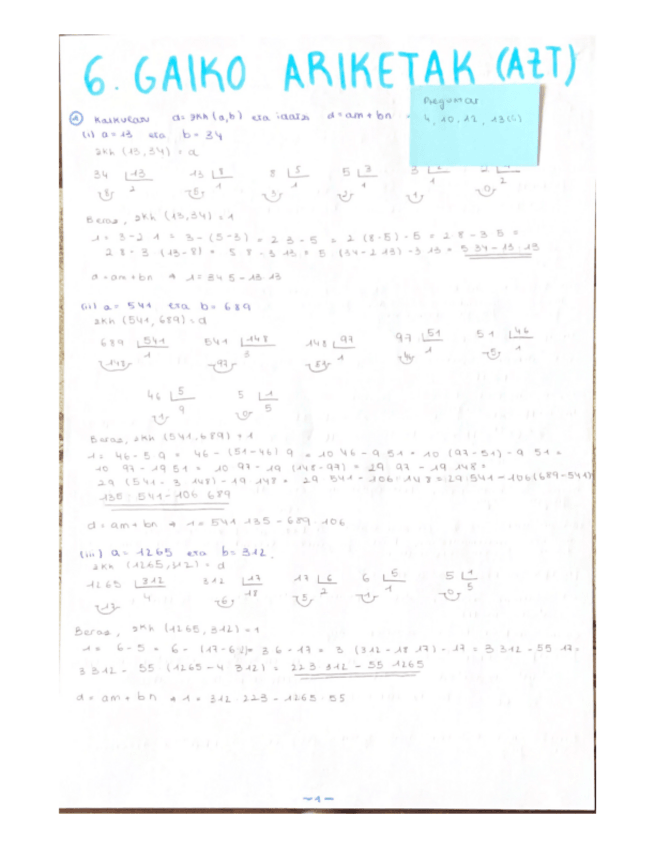 6. GAIKO ARIKETAK (AZT)
Preguntar
4, 10, 12, 13(c)
① Kalkulatu d = zkh (a,b) eta idatzi d = am + bn
(i) a = 13 eta b = 34
zkh (13,34) = d
34 |13 13 |8 8 |5 5 |3 3 2
8 2 5 1 3 1 2 1 1 1 0 2
Beraz, zkh (13,34) = 1
1 = 3 - 2·1 = 3 - (5-3) = 2·3 - 5 = 2·(8-5) - 5 = 2·8 - 3·5 =
2·8 - 3·(13-8) = 5·8 - 3·13 = 5·(34-2·13) - 3·13 = 5·34 - 13·13
d = am + bn → 1 = 34·5 - 13·13
(ii) a = 541 eta b = 689
zkh (541,689) = d
689 |541 541 |148 148 |97 97 |51 51 |46
148 1 97 3 1 1 5 1
46 |5 5 |1
1 9 0 5
Beraz, zkh (541,689) = 1
1 = 46 - 5·9 = 46 - (51-46)·9 = 10·46 - 9·51 = 10·(97-51) - 9·51 =
10·97 - 19·51 = 10·97 - 19·(148-97) = 29·97 - 19·148 =
29·(541 - 3·148) - 19·148 = 29·541 - 106·148 = 29·541 - 106(689-541)
135·541 - 106·689
d = am + bn → 1 = 541·135 - 689·106
(iii) a = 1265 eta b = 312.
zkh (1265,312) = d
1265 |312 312 |17 17 |6 6 |5 5 |1
4 6 18 5 2 1 1 0 5
Beraz, zkh (1265,312) = 1
1 = 6 - 5 = 6 - (17-6·2) = 3·6 - 17 = 3·(312-18·17) - 17 = 3·312 - 55·17 =
3·312 - 55·(1265-4·312) = 223·312 - 55·1265
d = am + bn → 1 = 312·223 - 1265·55
~1~